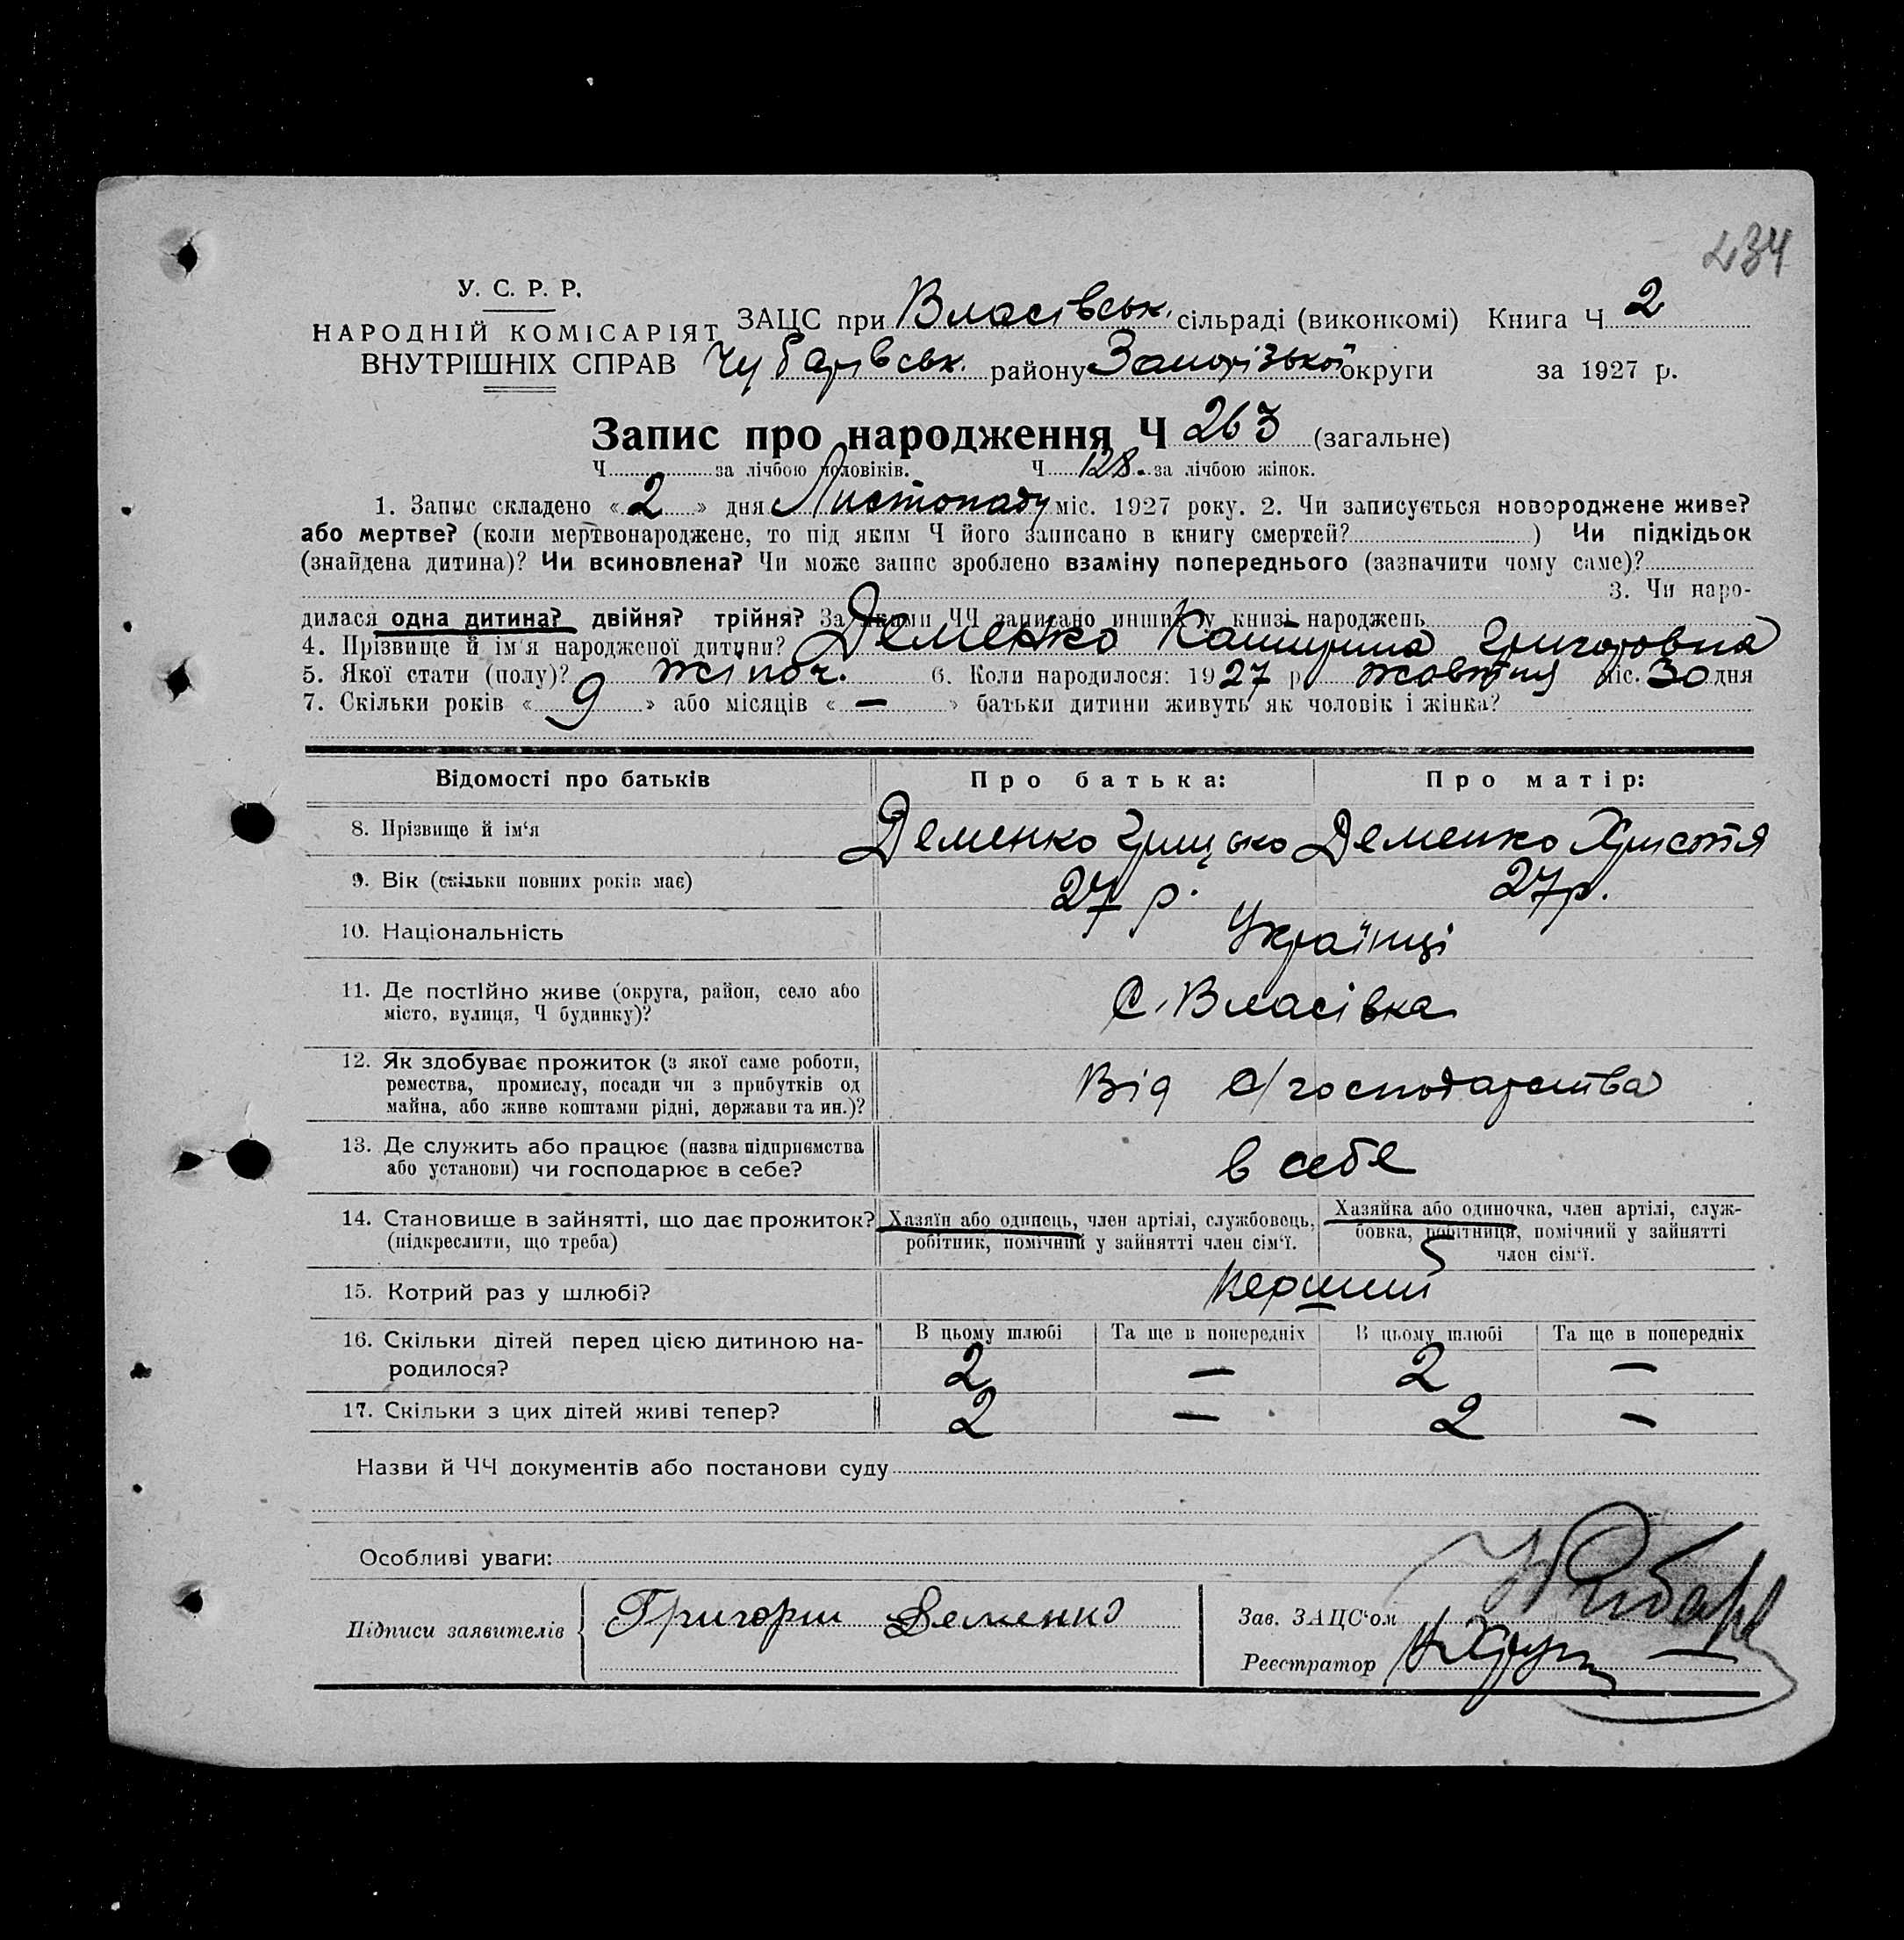 434
У. С. Р. Р.
НАРОДНІЙ КОМІСАРІЯТ
ВНУТРІШНІХ СПРАВ
ЗАЦС при Власівськ. сільраді (виконкомі) Книга Ч 2
Чубарівськ. району Запорізької округи за 1927 р.
Запис про народження Ч 263 (загальне)
Ч за лічбою чоловіків. Ч 128. за лічбою жінок.
1. Запис складено «2» дня Листопаду міс. 1927 року. 2. Чи записується новороджене живе?
або мертве? (коли мертвонароджене, то під яким Ч його записано в книгу смертей? ) Чи підкідьок
(знайдена дитина)? Чи всиновлена? Чи може запис зроблено взаміну попереднього (зазначити чому саме)?
3. Чи наро-
дилася одна дитина? двійня? трійня? За якими ЧЧ записано инших у книзі народжень
4. Прізвище й ім'я народженої дитини? Деменко Катирина Григоровна
5. Якої стати (полу)? жіноч. 6. Коли народилося: 1927 р. жовтня міс. 30 дня
7. Скільки років «9» або місяців «—» батьки дитини живуть як чоловік і жінка?
Відомості про батьків Про батька: Про матір:
8. Прізвище й ім'я Деменко Грицько Деменко Христя
9. Вік (скільки повних років має) 27 р. 27 р.
10. Національність Українці
11. Де постійно живе (округа, район, село або
місто, вулиця, Ч будинку)? С. Власівка
12. Як здобуває прожиток (з якої саме роботи,
ремества, промислу, посади чи з прибутків од
майна, або живе коштами рідні, держави та ин.)? Від с/господарства
13. Де служить або працює (назва підприємства
або установи) чи господарює в себе? в себе
14. Становище в зайнятті, що дає прожиток?
(підкреслити, що треба)
Хазяїн або одинець, член артілі, службовець,
робітник, помічний у зайнятті член сім'ї.
Хазяйка або одиночка, член артілі, служ-
бовка, робітниця, помічний у зайнятті
член сім'ї.
15. Котрий раз у шлюбі? перший
16. Скільки дітей перед цією дитиною на-
родилося?
В цьому шлюбі Та ще в попередніх В цьому шлюбі Та ще в попередніх
2 — 2 —
17. Скільки з цих дітей живі тепер? 2 — 2 —
Назви й ЧЧ документів або постанови суду
Особливі уваги:
Підписи заявителів Григорий Деменко
Зав. ЗАЦС'ом
Реєстратор